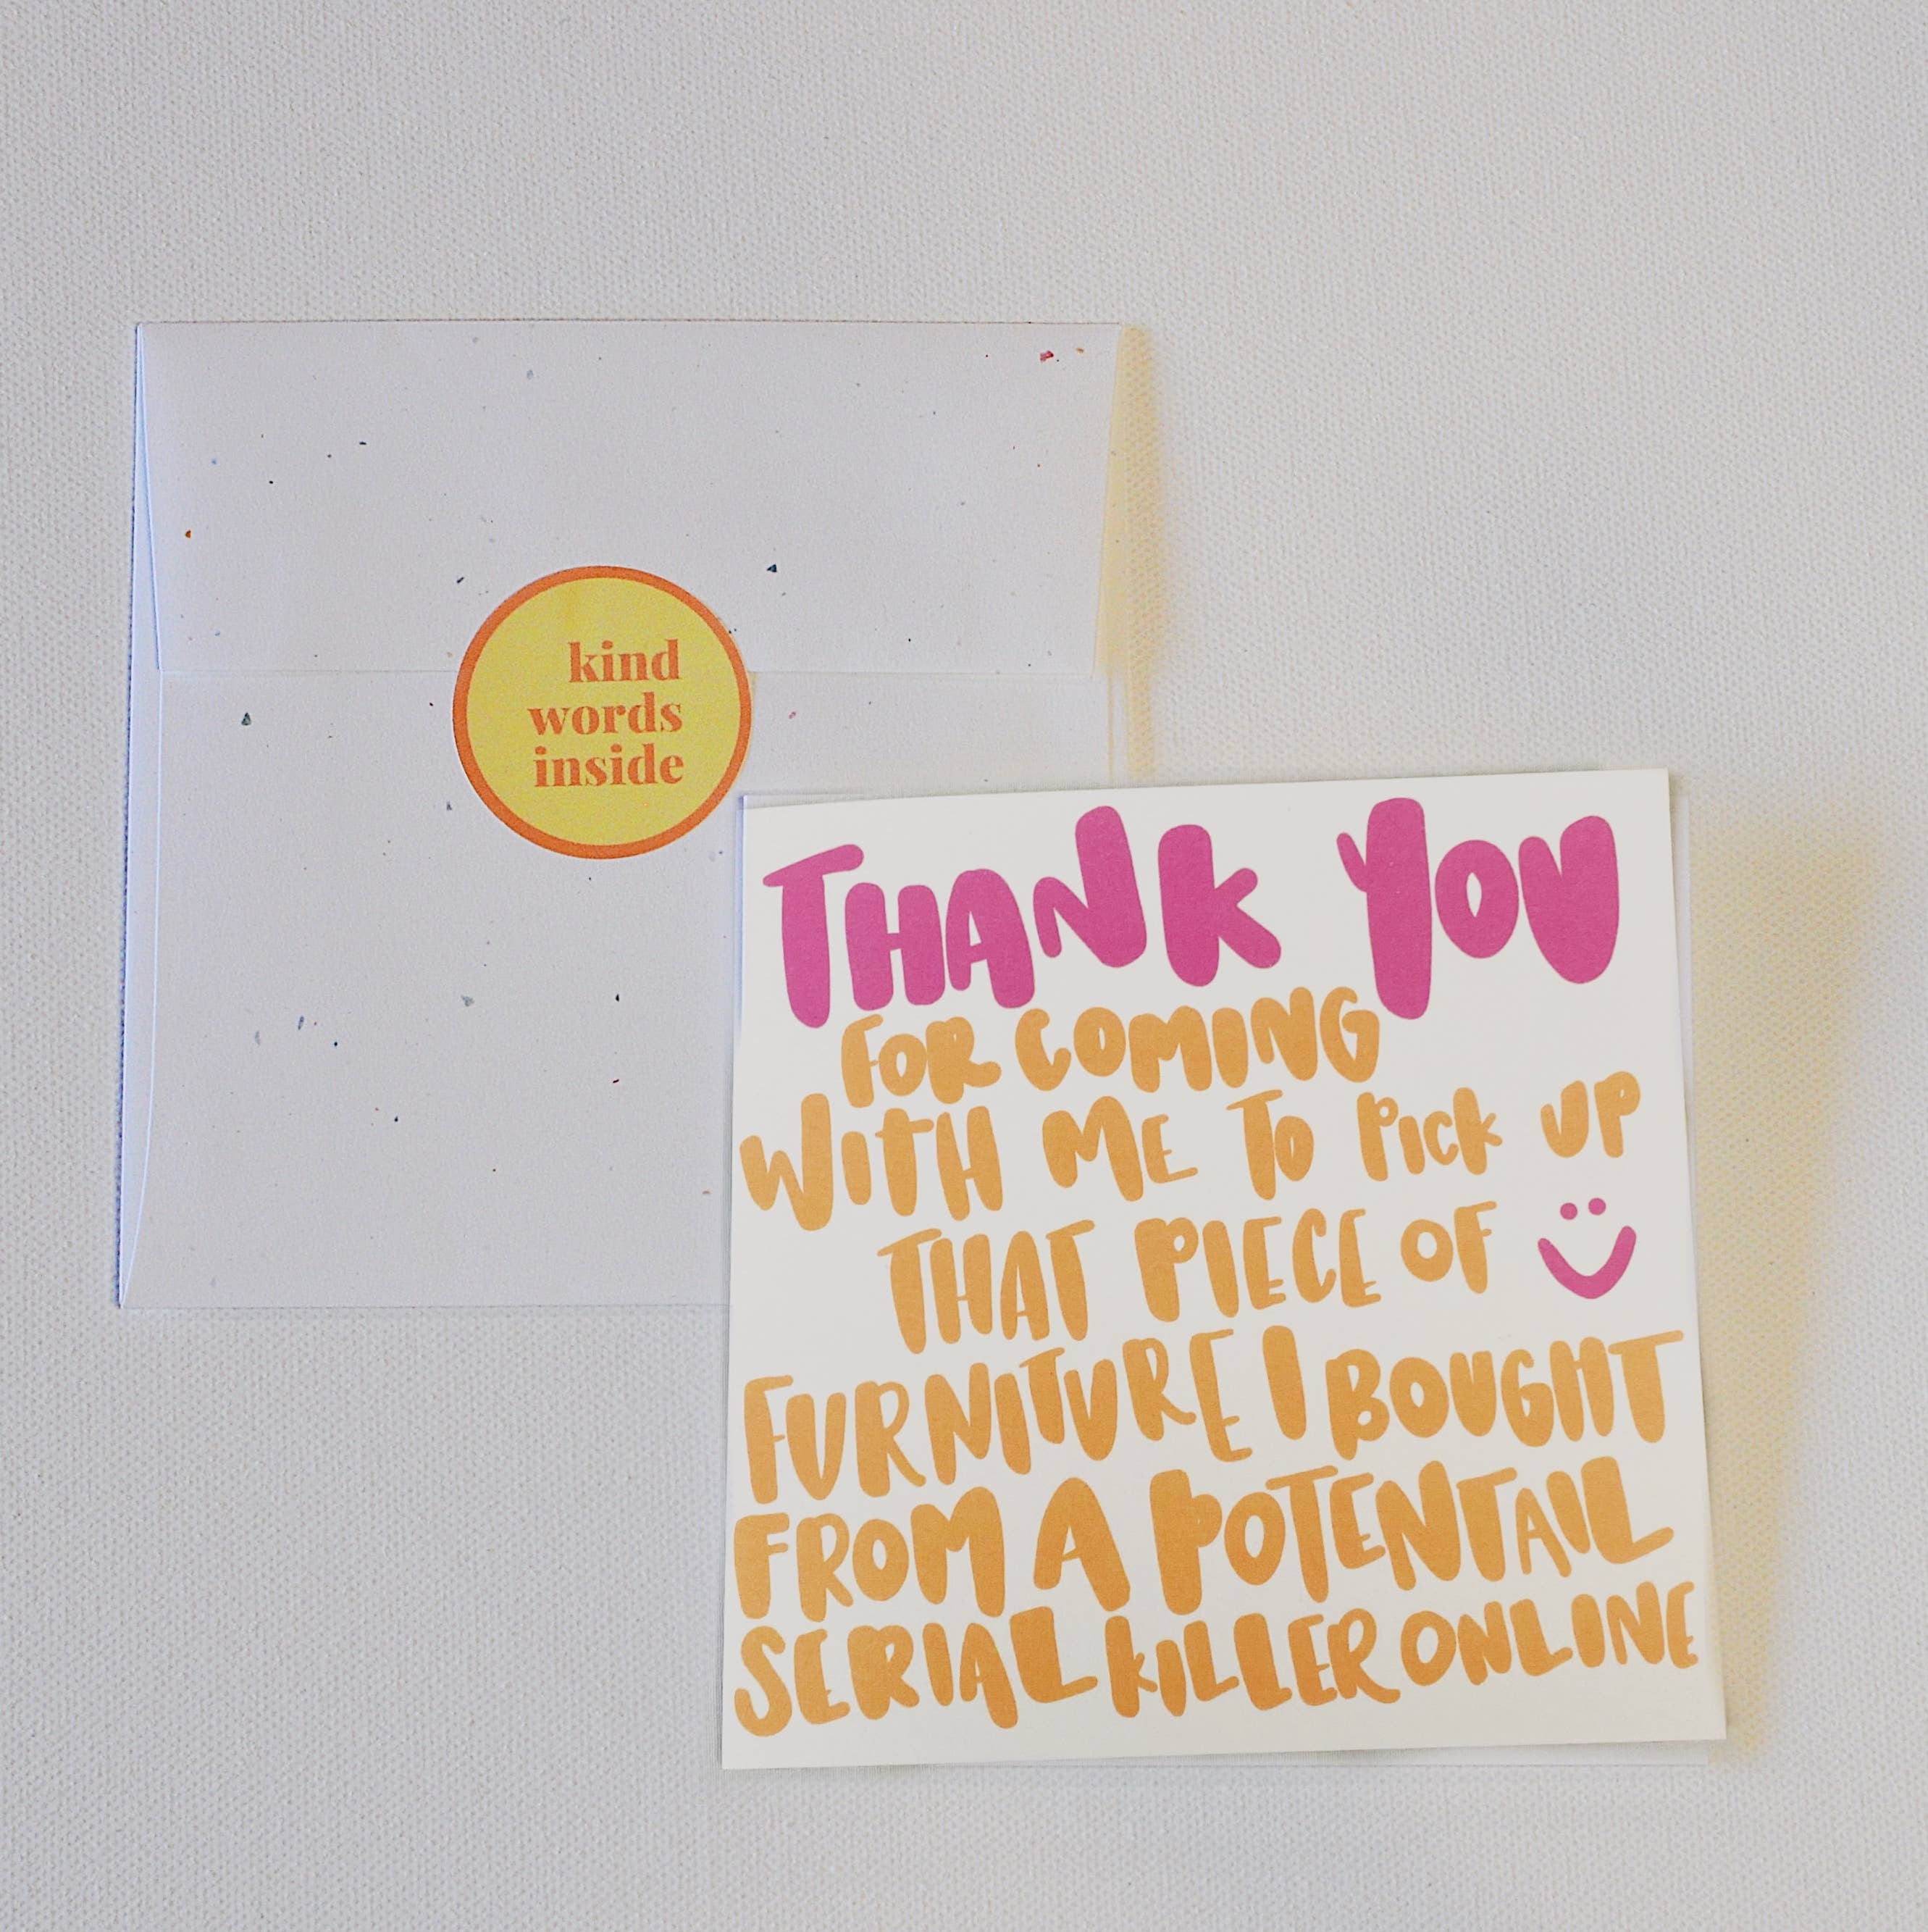 kind
words
inside
THANK YOU
FOR COMING
WITH ME TO PICK UP
THAT PIECE OF
FURNITURE I BOUGHT
FROM A POTENTAIL
SERIAL KILLER ONLINE